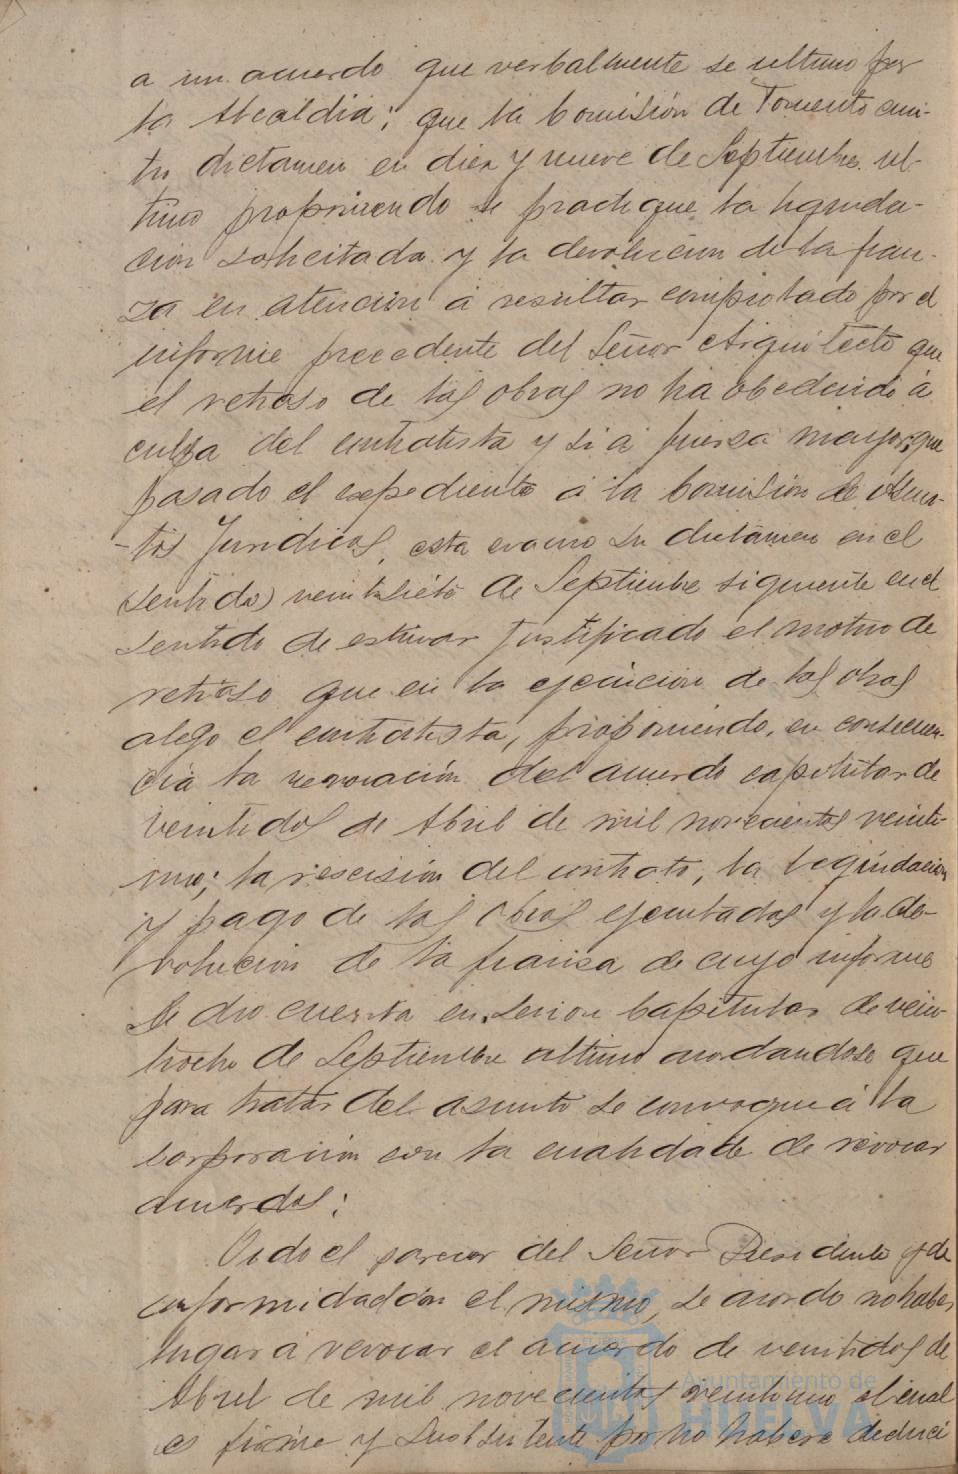 a un acuerdo que verbalmente se ultimo por
la Alcaldia; que la Comisión de Fomento emi-
tio dictamen en diez y nueve de Septiembre ul-
timo proponiendo se practique la liquida-
cion solicitada y la devolucion de la fian-
za en atención á resultar comprobado por el
informe precedente del Señor Arquitecto que
el retraso de las obras no ha obedecido á
culpa del contratista y si á fuerza mayor; que
pasado el expediente á la Comisión de Asun-
-tos Juridicos, esta evacuo su dictamen en el
(sentido) veintisiete de Septiembre siguiente en el
sentido de estimar justificado el motivo de
retraso que en la ejecución de las obras
alego el contratista, proponiendo, en consecuen-
cia la revocación del acuerdo capitular de
veintidos de Abril de mil novecientos veinti-
uno; la rescisión del contrato, la liquidacion
y pago de las obras ejecutadas y la de-
volucion de la fianza de cuyo informe
se dio cuenta en sesion Capitular de vein-
tiocho de Septiembre ultimo acordandose que
para tratar del asunto se convoque á la
Corporación con la cualidad de de revocar
acuerdos:
Oido el parecer del Señor Presidente y de
conformidad con el mismo, se acordo no haber
lugar á revocar el acuerdo de veintidos de
Abril de mil novecientos veintiuno el cual
es firme y subsistente por no haberse deduci
Ayuntamiento de
HUELVA